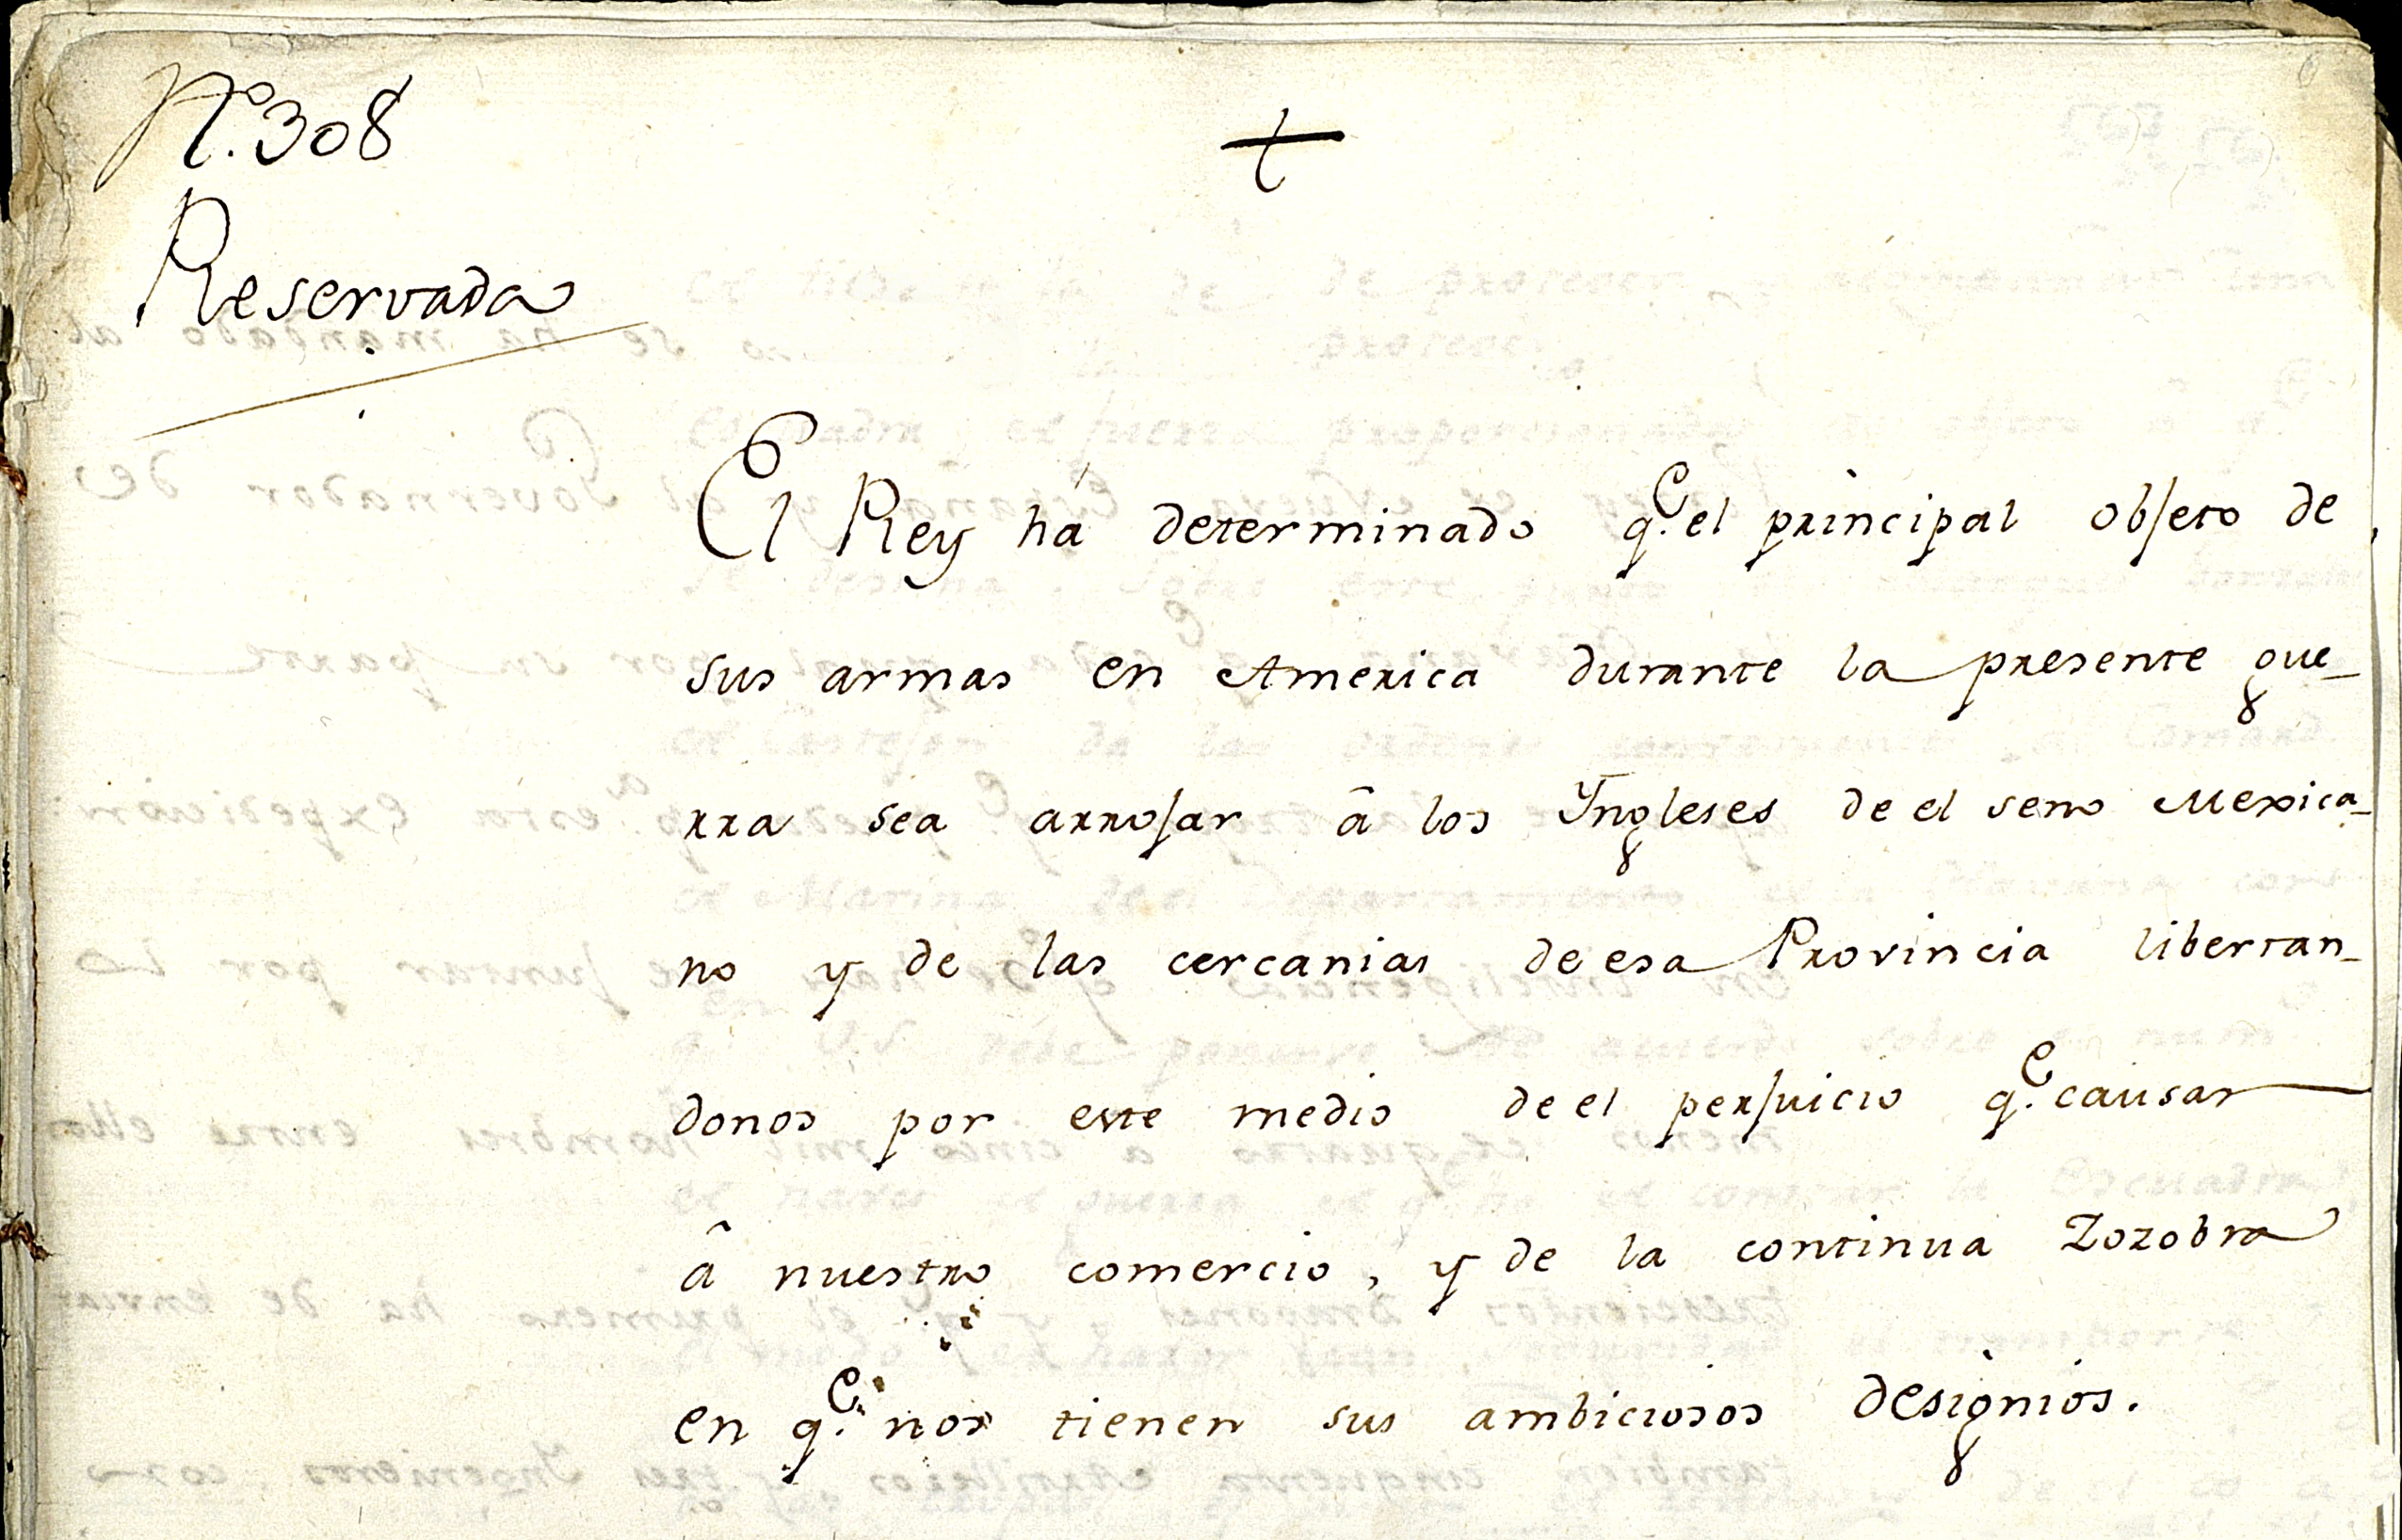 N.º 308
+
Reservada
El Rey há determinado q.e el principal objeto de
sus armas en America durante la presente gue-
rra sea arrojar â los Yngleses de el seno Mexica-
no y de las cercanias de esa Provincia libertan-
donos por este medio de el perjuicio q.e causan
â nuestro comercio, y de la continua zozobra
en q.e nos tienen sus ambiciosos designios.